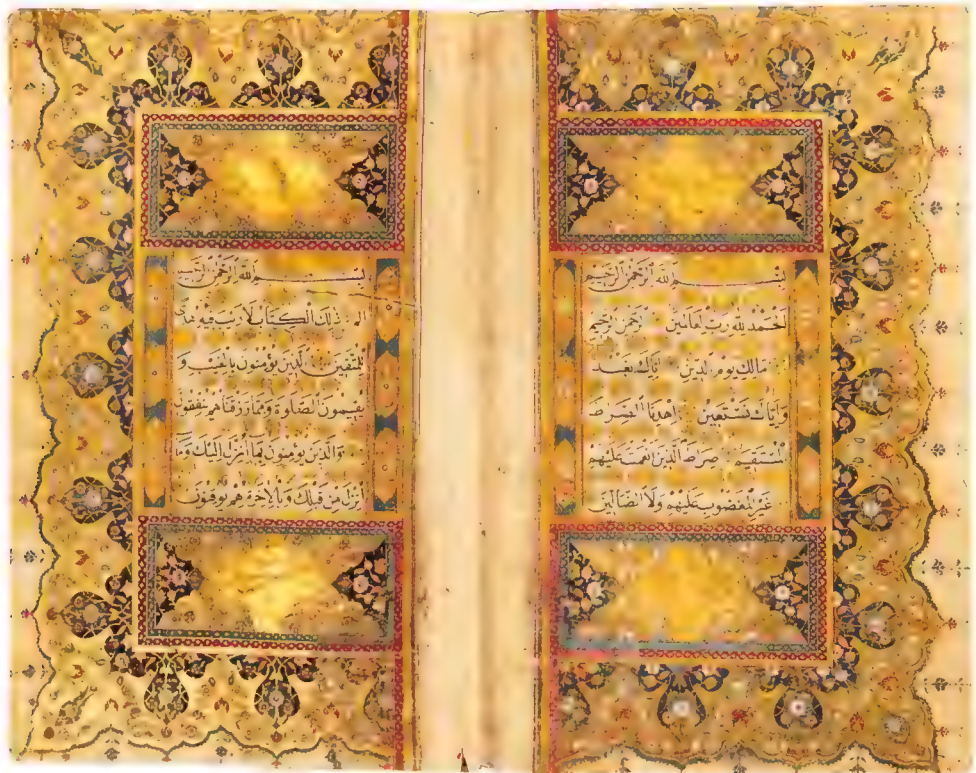 بسم الله الرحمن الرحيم
الحمد لله رب العالمين الرحمن الرحيم
مالك يوم الدين اياك نعبد
واياك نستعين اهدنا الصراط
المستقيم صراط الذين انعمت عليهم
غير المغضوب عليهم ولا الضالين
بسم الله الرحمن الرحيم
الم ذلك الكتاب لا ريب فيه هدى
للمتقين الذين يؤمنون بالغيب و
يقيمون الصلوة ومما رزقناهم ينفقون
والذين يؤمنون بما انزل اليك وما
انزل من قبلك وبالاخرة هم يوقنون